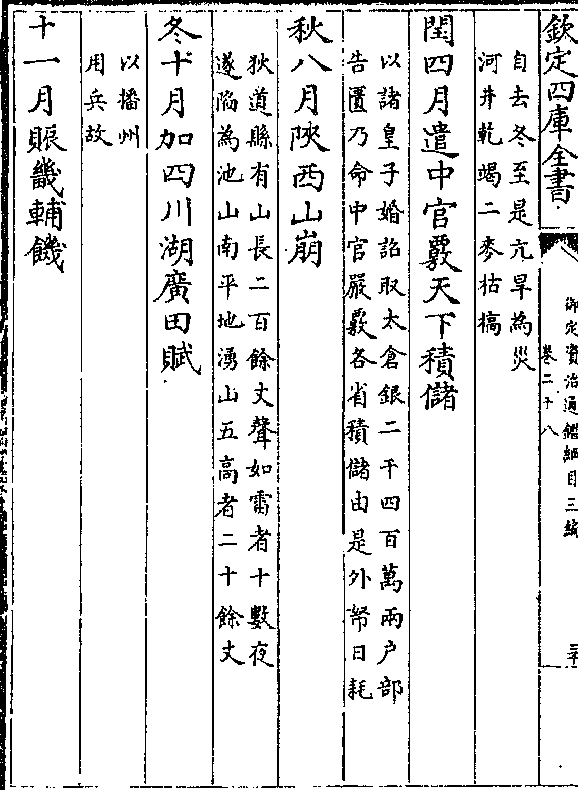 欽定四庫全書
御定資治通鑑綱目三編
卷二十八
自去冬至是亢旱為災
河井乾竭二麥枯槁
閏四月遣中官覈天下積儲
以諸皇子婚詔取太倉銀二千四百萬兩戶部
告匱乃命中官嚴覈各省積儲由是外帑日耗
秋八月陝西山崩
狄道縣有山長二百餘丈聲如雷者十數夜
遂陷為池山南平地湧山五高者二十餘丈
冬十月加四川湖廣田賦
以播州
用兵故
十一月賑畿輔饑